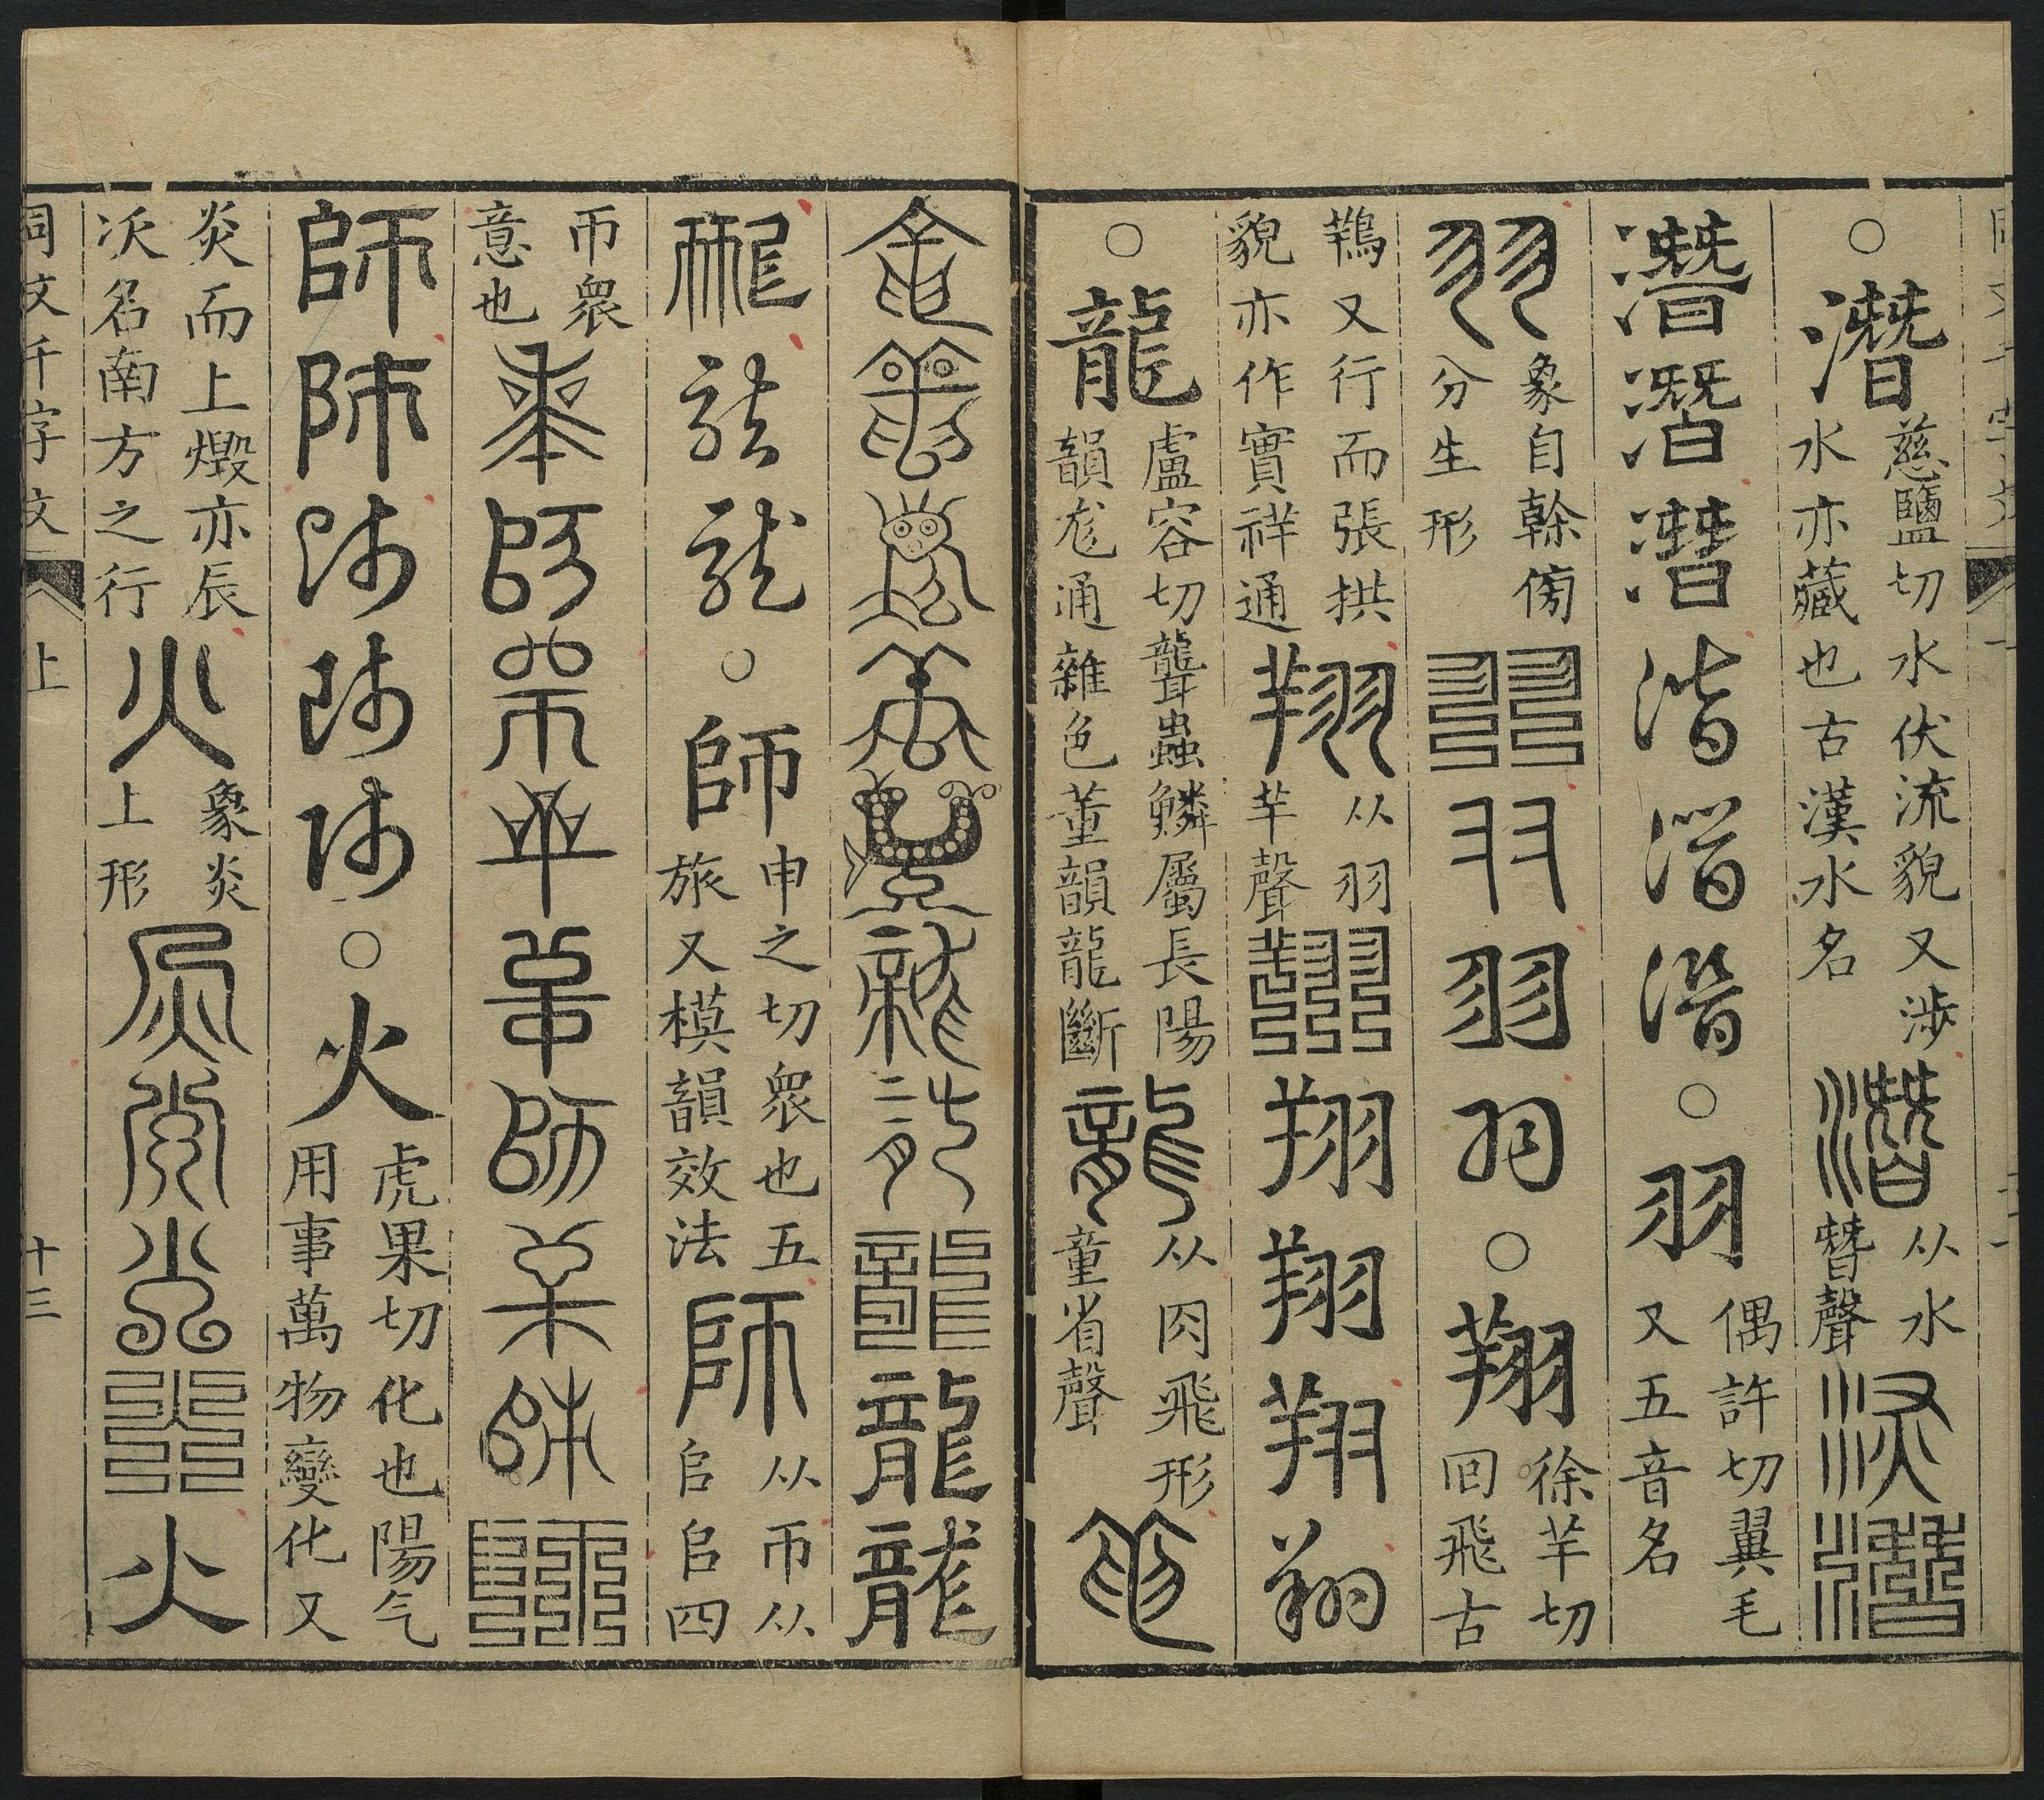 ○潛慈鹽切水伏流貌又涉
水亦藏也古漢水名
潛从水
朁聲
潛潛
潛潛潛潛潛潛○羽偶許切翼毛
又五音名
羽象自榦傍
分生形
羽羽羽羽○翔徐羊切
回飛古
鴹又行而張拱
貌亦作實祥通
翔从羽
羊聲
翔翔翔翔翔
○龍盧容切聾蟲鱗屬長陽
韻尨通雜色董韻龍斷
龍从肉飛形
童省聲
龍
龍龍龍龍龍龍龍龍龍龍
龍龍龍○師申之切衆也五
旅又模韻效法
師从帀从
𠂤𠂤四
帀衆
意也
師師師師師師師師
師師師師師○火虎果切化也陽气
用事萬物變化又
炎而上燬亦辰
次名南方之行
火象炎
上形
火火火火火
同文千字文 上 十三